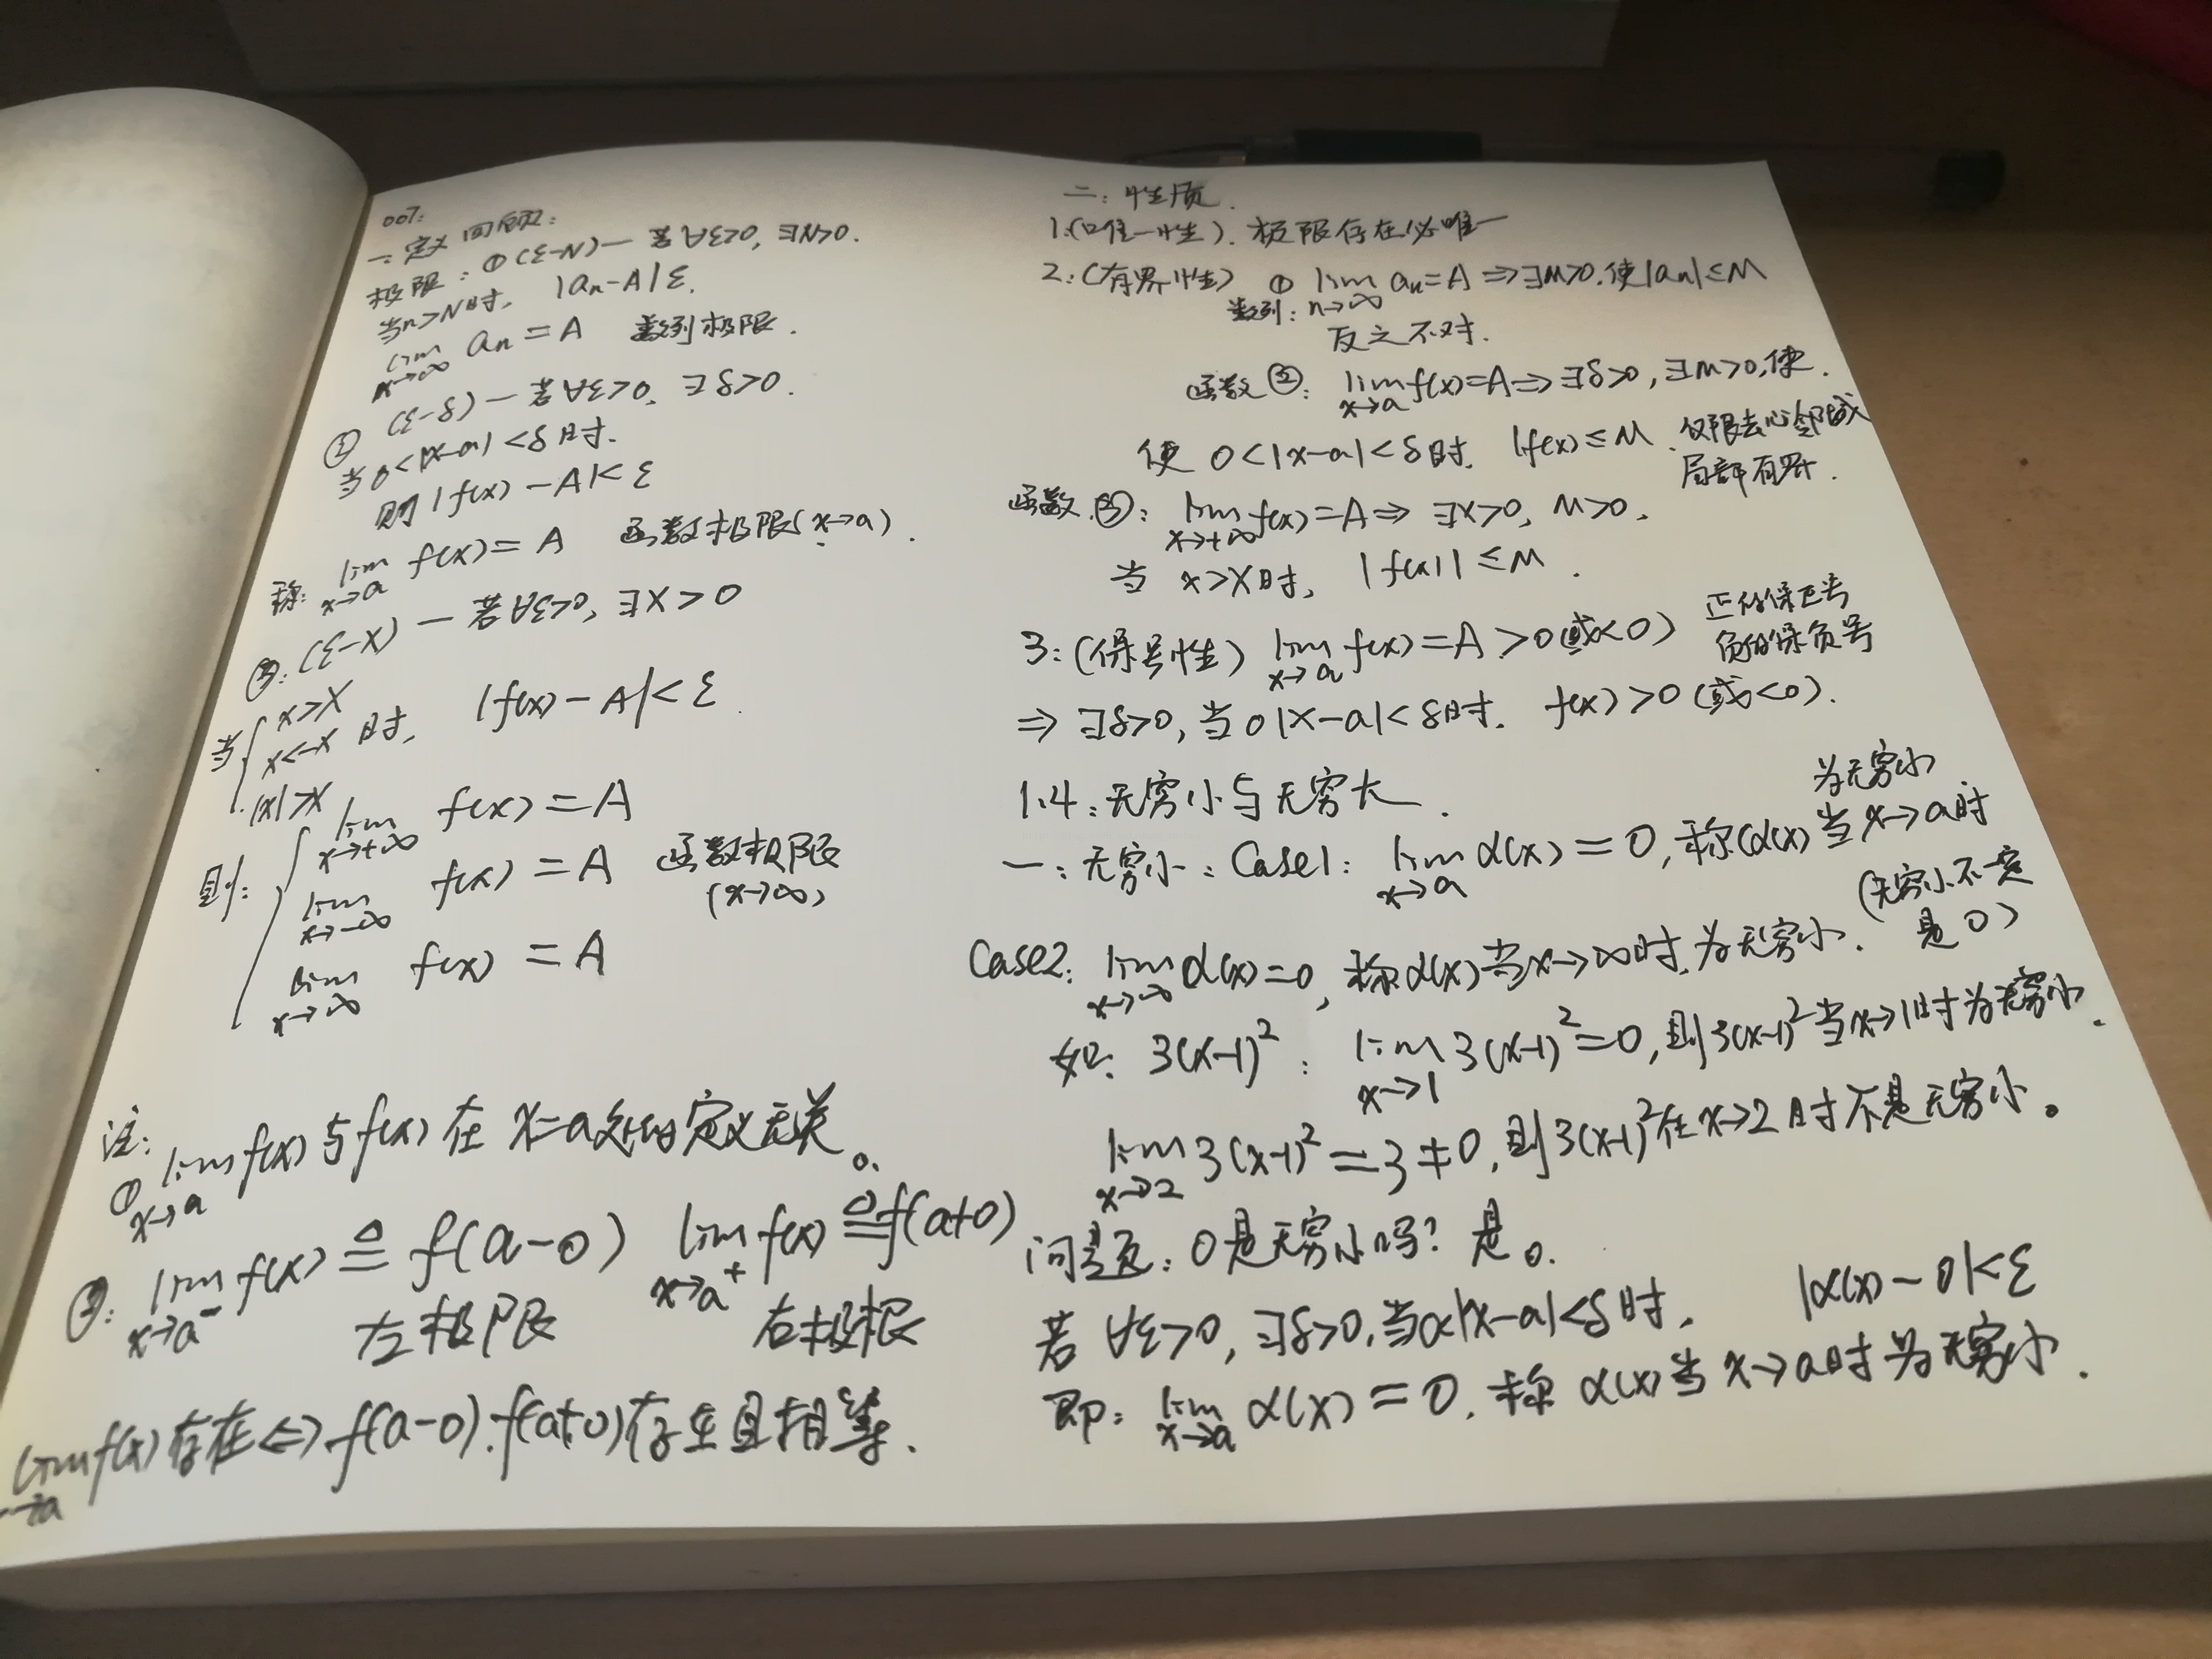 007:
一:定义回顾:
极限:①(ε-N)—若∀ε>0, ∃N>0.
当n>N时, |an-A|ε.
lim an=A 数列极限.
n→∞
② (ε-δ)—若∀ε>0, ∃δ>0.
当0<|x-a|<δ时.
则|f(x)-A|<ε
称: lim f(x)=A 函数极限(x→a).
x→a
③:(ε-X)—若∀ε>0, ∃X>0
当{ x>X
x<-X 时, |f(x)-A|<ε.
|x|>X
则: { lim f(x)=A
x→+∞
lim f(x)=A 函数极限
x→-∞ (x→∞)
lim f(x)=A
x→∞
注:
① lim f(x)与f(x)在x=a处的定义无关。
x→a
②: lim f(x)≜f(a-0) lim f(x)≜f(a+0)
x→a⁻ x→a⁺
左极限 右极限
lim f(x)存在⇔f(a-0).f(a+0)存在且相等.
→a
二:性质.
1.(唯一性).极限存在必唯一
2:(有界性) ① lim an=A⇒∃M>0.使|an|≤M
数列: n→∞
反之不对.
函数②: lim f(x)=A⇒∃δ>0,∃M>0,使.
x→a
使 0<|x-a|<δ时. |f(x)≤M. 仅限去心邻域
局部有界.
函数.③: lim f(x)=A⇒ ∃X>0, M>0.
x→+∞
当 x>X时, |f(x)|≤M.
3:(保号性) lim f(x)=A>0(或<0) 正的保正号
x→a 负的保负号
⇒∃δ>0,当0|x-a|<δ时. f(x)>0(或<0).
1.4:无穷小与无穷大.
为无穷小
一:无穷小:Case1: lim α(x)=0,称(α(x)当x→a时
x→a
(无穷小不一定
是0)
Case2: lim α(x)=0,称α(x)当x→∞时.为无穷小.
x→∞
如: 3(x-1)²: lim 3(x-1)²=0,则3(x-1)²当x→1时为无穷小.
x→1
lim 3(x-1)²=3≠0,则3(x-1)²在x→2时不是无穷小。
x→2
问题:0是无穷小吗?是。
若∀ε>0,∃δ>0,当0<|x-a|<δ时. |α(x)-0|<ε
即: lim α(x)=0.称α(x)当x→a时为无穷小.
x→a